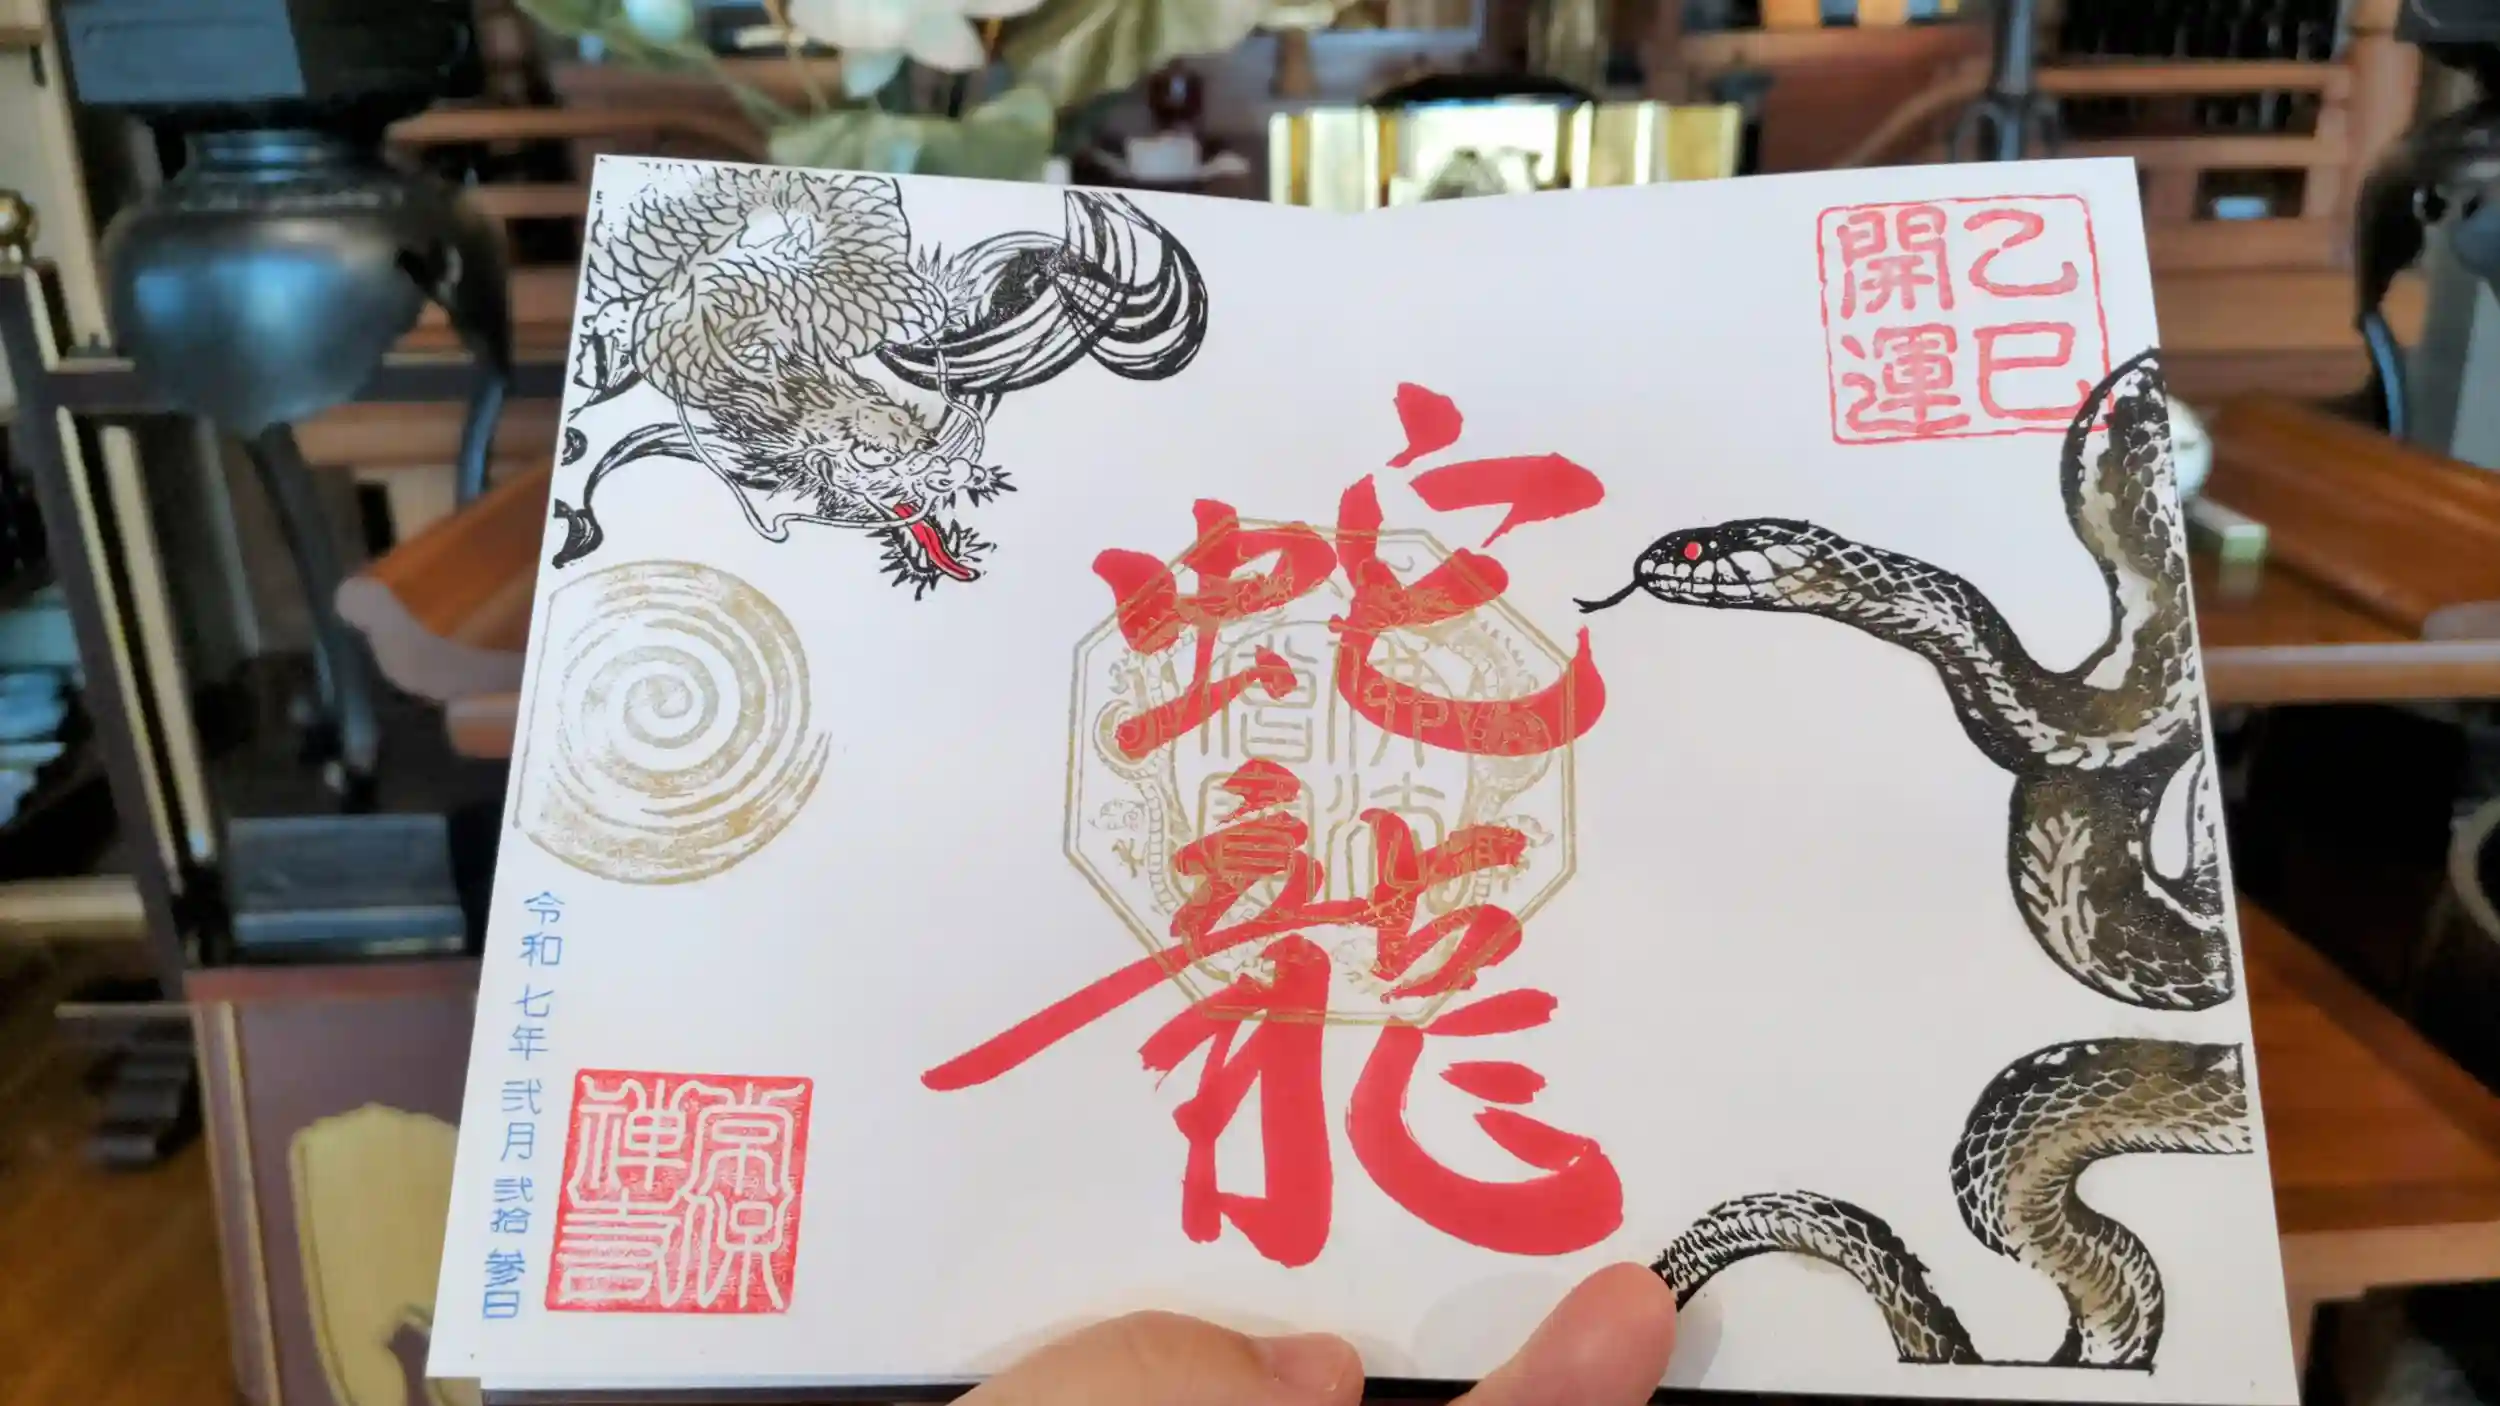 乙巳
開運
蛇龍
佛法
僧寳
令和七年 弐月 弐拾参日
常保
禅寺